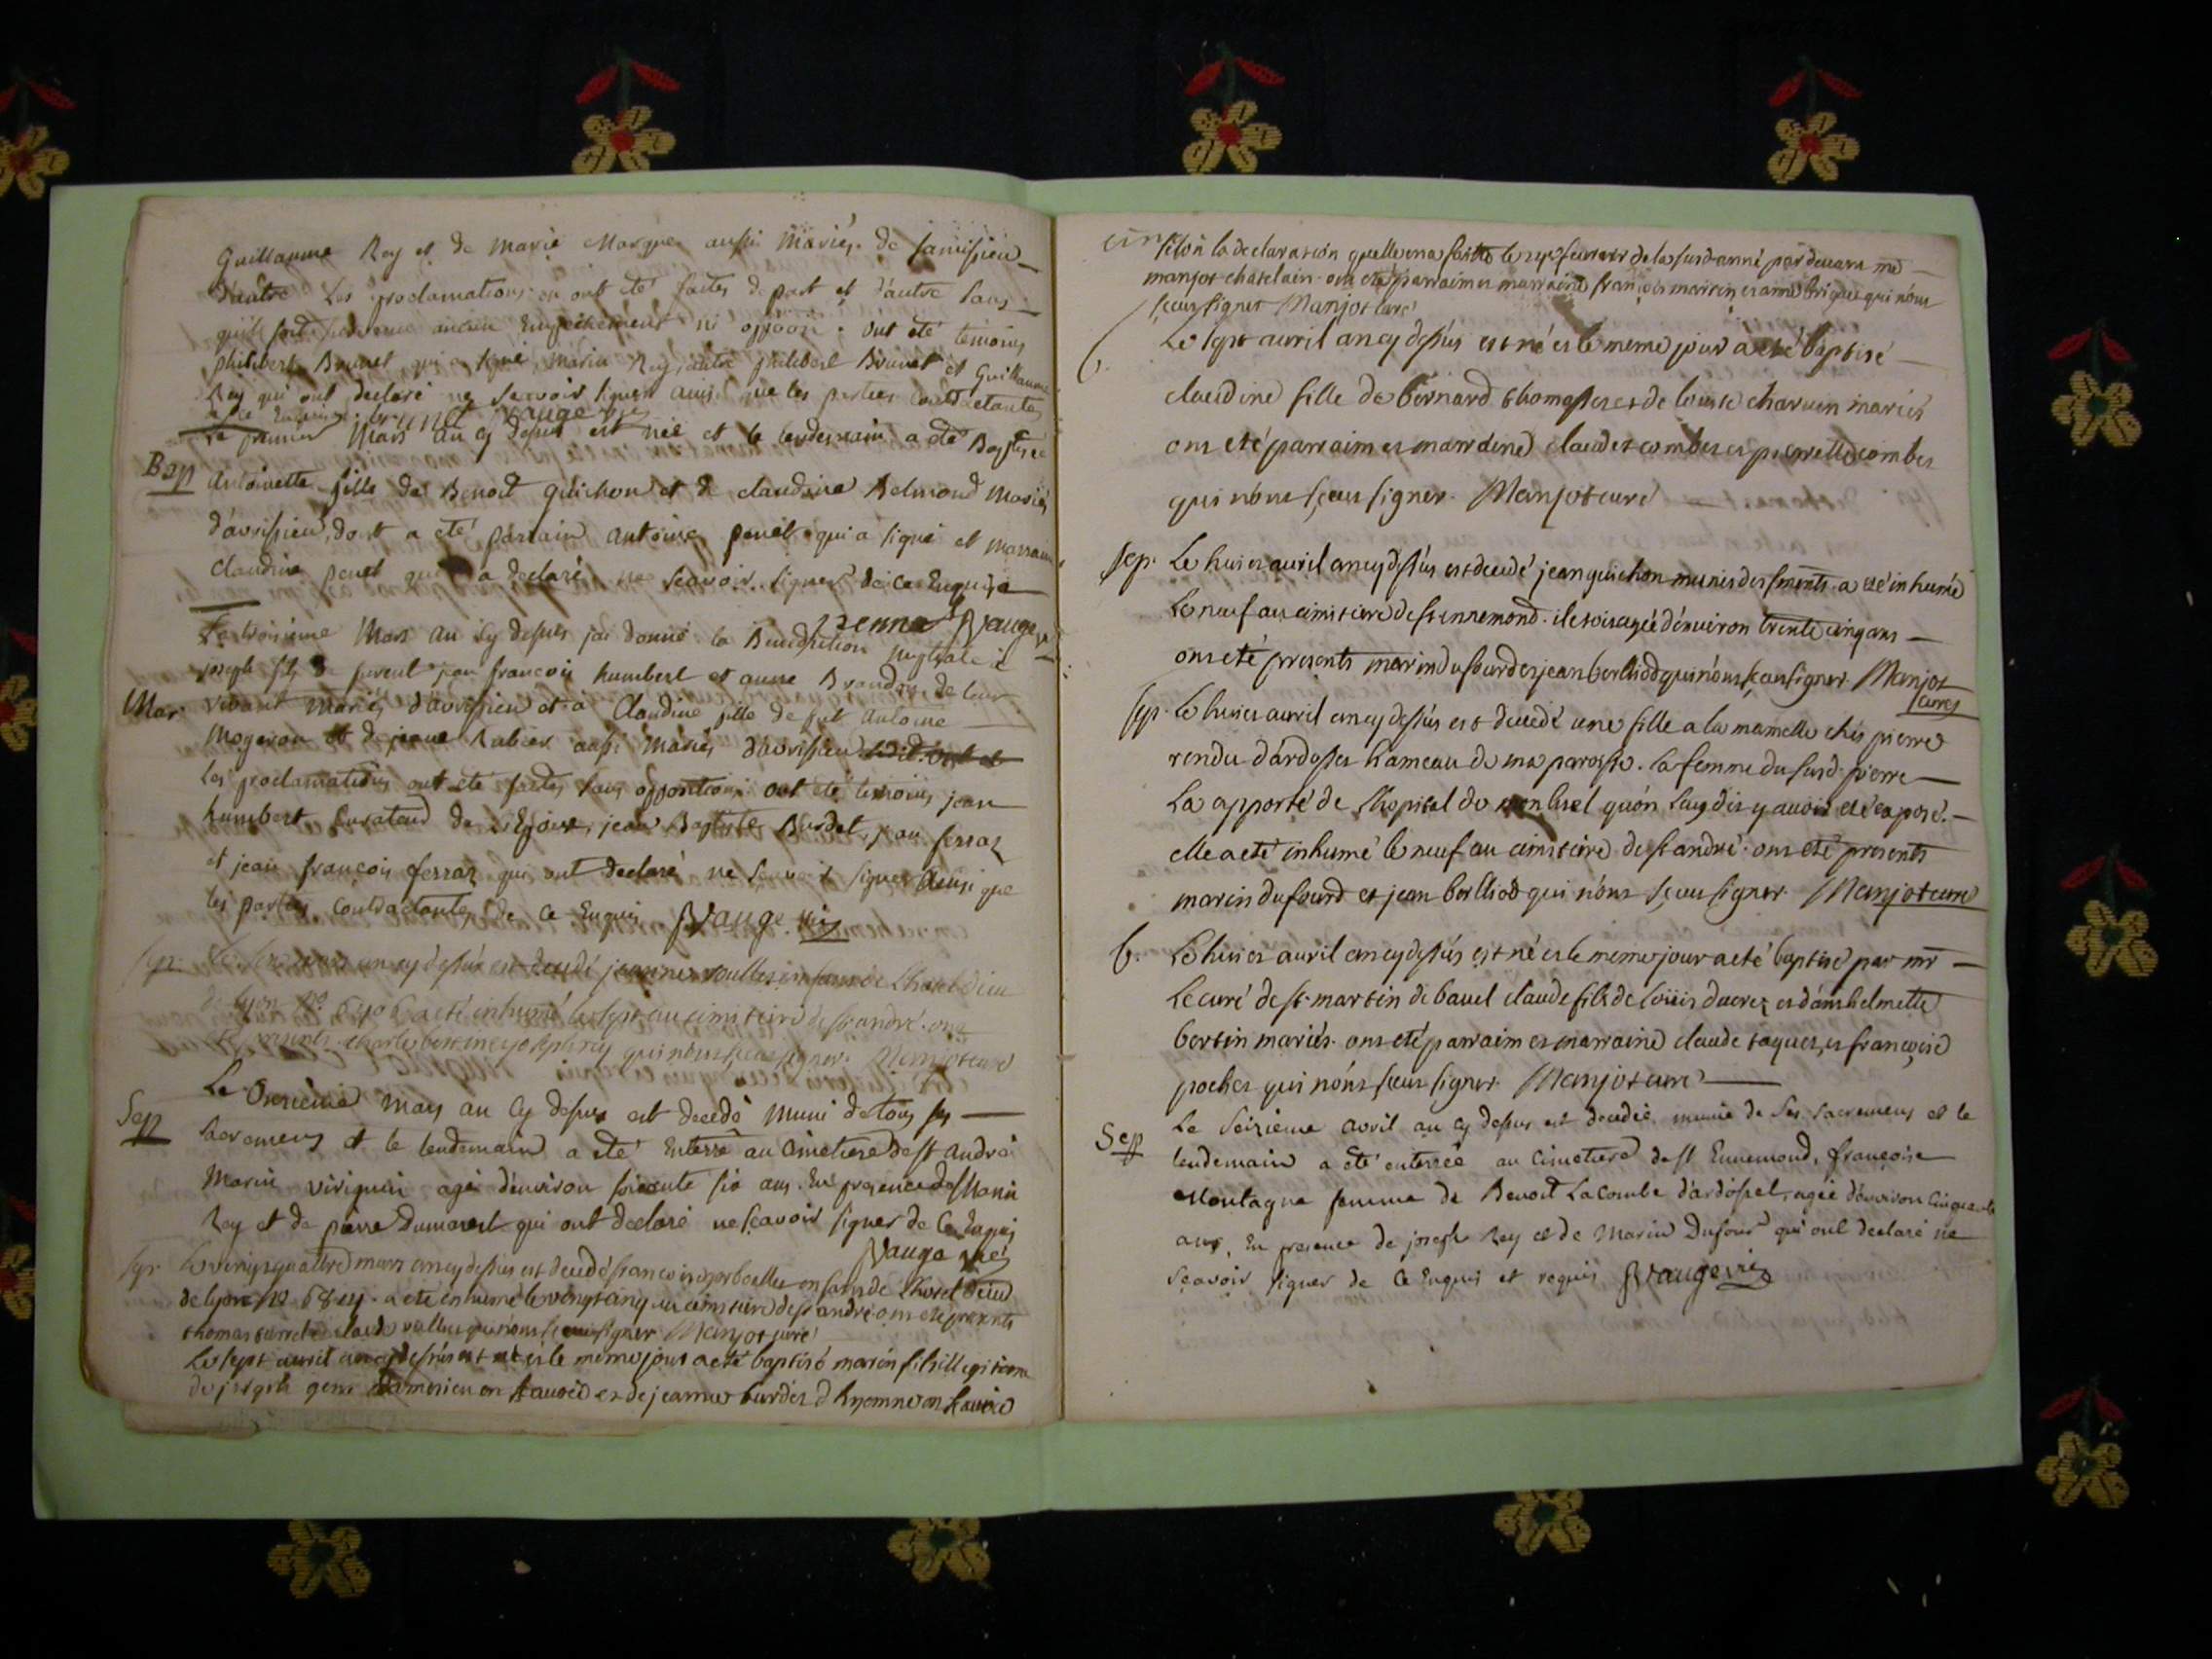 Guillaume Rey et de Marie Marque aussi Mariés de samisieu
d'autre Les proclamations en ont été faites de part et d'autre sans
qu'il soit survenu aucun Empêchement ni oppoõn. ont été témoins
philibert Brunet, qui a signé, Marin Rey, autre philibert Brunet et Guillaume
Rey qui ont declaré ne Sçavoir signer ainsi que les parties Contractantes
de ce Enquis. brunet Vauge vic
Le premier Mars an cy dessus est née et le lendemain a été Baptisée
Bap
Antoinette fille de Benoit Guichon et de claudine Belmond Mariés
d'avrissieu, dont a été parrain Antoine penet qui a signé et marraine
Claudine penet qui a declaré ne Sçavoir signer de ce Enquise
penet Vauge v
Le troisieme Mars an cy dessus j'ai donné la Benediction Nuptiale à
joseph fils de furent jean françois humbert et anne Brandon, de leur
Mar.
vivant Mariés d'avrissieu et à Claudine fille de fut Antoine
Mogeron et de jeane Rubier aussi Mariés d'avrissieu
les proclamations ont été faites sans opposition. ont été temoins jean
humbert Curateur de L'Epouse, jean Baptiste Burdet, jean ferraz
et jean françois ferraz qui ont declaré ne Sçavoir signer Ainsi que
les parties Contractantes de ce Enquis Vauge vic
sep. Le six mars an cy dessus est decedé jeanne enfant de L'hotel dieu
de lyon No 6906 a eté inhumé le sept au cimitiere de st andré. ont
eté presents charle et joseph rey qui n'ont sçeu signer. Manjot curé
Sep
Le Onzieme Mars an cy dessus est decedé Muni de tous ses
sacremens et le lendemain a été Enterré au Cimetiere de st André
Marin viriguin agé d'environ soixante six ans. En presence de Marin
Rey et de pierre Dumarest qui ont declaré ne Sçavoir signer de Ce Enquis
Vauge vic
sep. Le vingt quattre mars an cy dessus est decedé francois enfant de L'hotel Dieu
de lyon No a eté inhumé le vingt cinq au cimitiere de st andré ont eté presents
thomas et claude qui n'ont sçeu signer Manjot curé
Le sept avril an cy dessus est né et le meme jour a eté baptisé marin fils illegitime
de joseph gem damesieu en Savoie et de jeanne burdet d hyenne en Savoie
selon la declaration quelle en a faitte le fevrier de la susd. anné par devant me
manjot chatelain. ont eté parrain et marraine françois martin et anne brique qui n'ont
sçeu signer Manjot curé
b.
Le sept avril an cy dessus est né et le meme jour a eté baptisé
claudine fille de bernard thomasset et de louise charven mariés
ont eté parrain et marraine claude combes et pierrette combes
qui n'ont sçeu signer. Manjot curé
sep. Le huit avril an cy dessus est decedé jean guichon munis des sments. a eté inhumé
Le neuf au cimitiere de st ennemond. il etoit agée d'environ trente cinq ans
ont eté presents marin dufourd et jean berlliod qui n'ont sçeu signer. Manjot
curé
sep. Le huit avril an cy dessus est decedé une fille a la mamelle chés pierre
rendu d'ardosset hameau de ma paroisse. la femme du susd. pierre
La apporté de L'hopital de qu'on luy dit y avoir eté exposé.
elle a eté inhumé le neuf au cimitiere de st andré. ont eté presents
marin dufourd et jean berlliod qui n'ont sçeu signer. Manjot curé
b. Le huit avril an cy dessus est né et le meme jour a eté baptisé par mr
Le curé de st. martin de bavel claude fils de loüis ducrez et d'anthelmette
bertin mariés. ont eté parrain et marraine claude taquet, et françoise
pochet qui n'ont sçeu signer. Manjot curé
Sep
Le Seizieme avril an cy dessus est decedée, munie de ses sacremens et le
lendemain a été enterrée au Cimetiere de st Ennemond, françoise
Montagne femme de Benoit La Combe d'ardosset, agée d'environ Cinquante
ans, En presence de joseph Rey et de Marin Dufour qui ont declaré ne
Sçavoir signer de Ce Enquis et requis Vauge vic